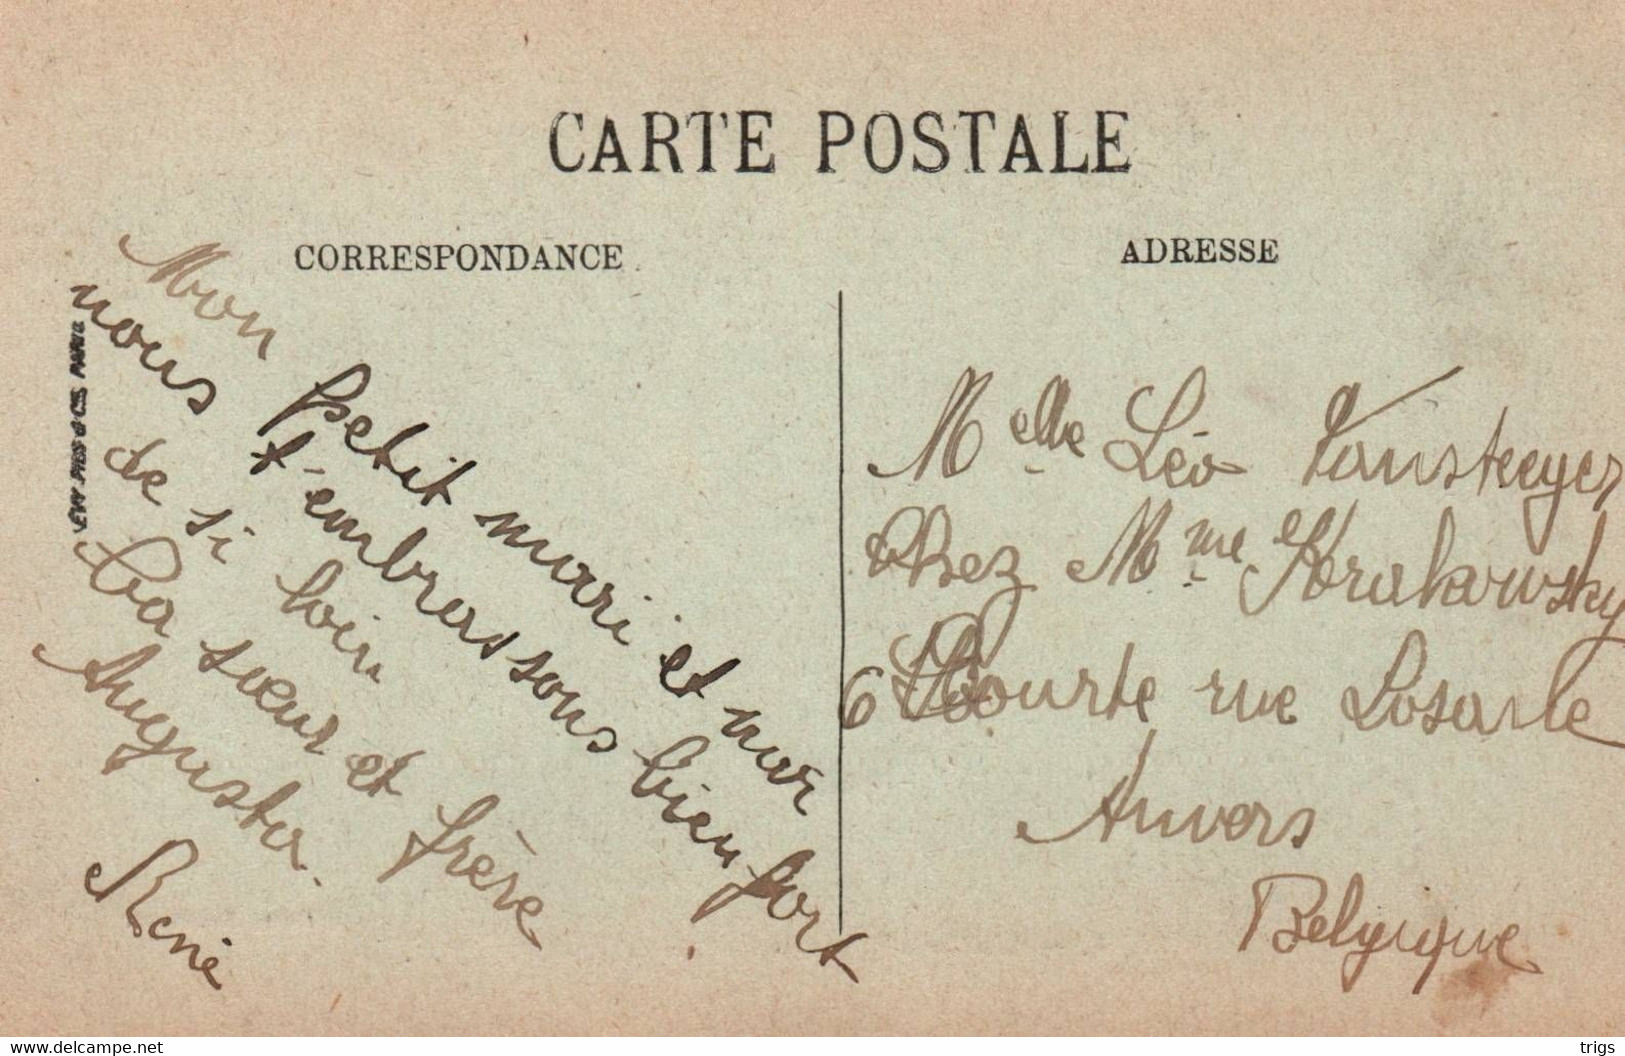 CARTE POSTALE
CORRESPONDANCE
ADRESSE
Mon petit mari et mur
nous t'embrassons bien fort
de si loin
ta sœur et frère
Augusta.
René
Melle Léo Vansteeger
Chez Mme Krakowsky
6 Courte rue
Anvers
Belgique
www.delcampe.net
trigs